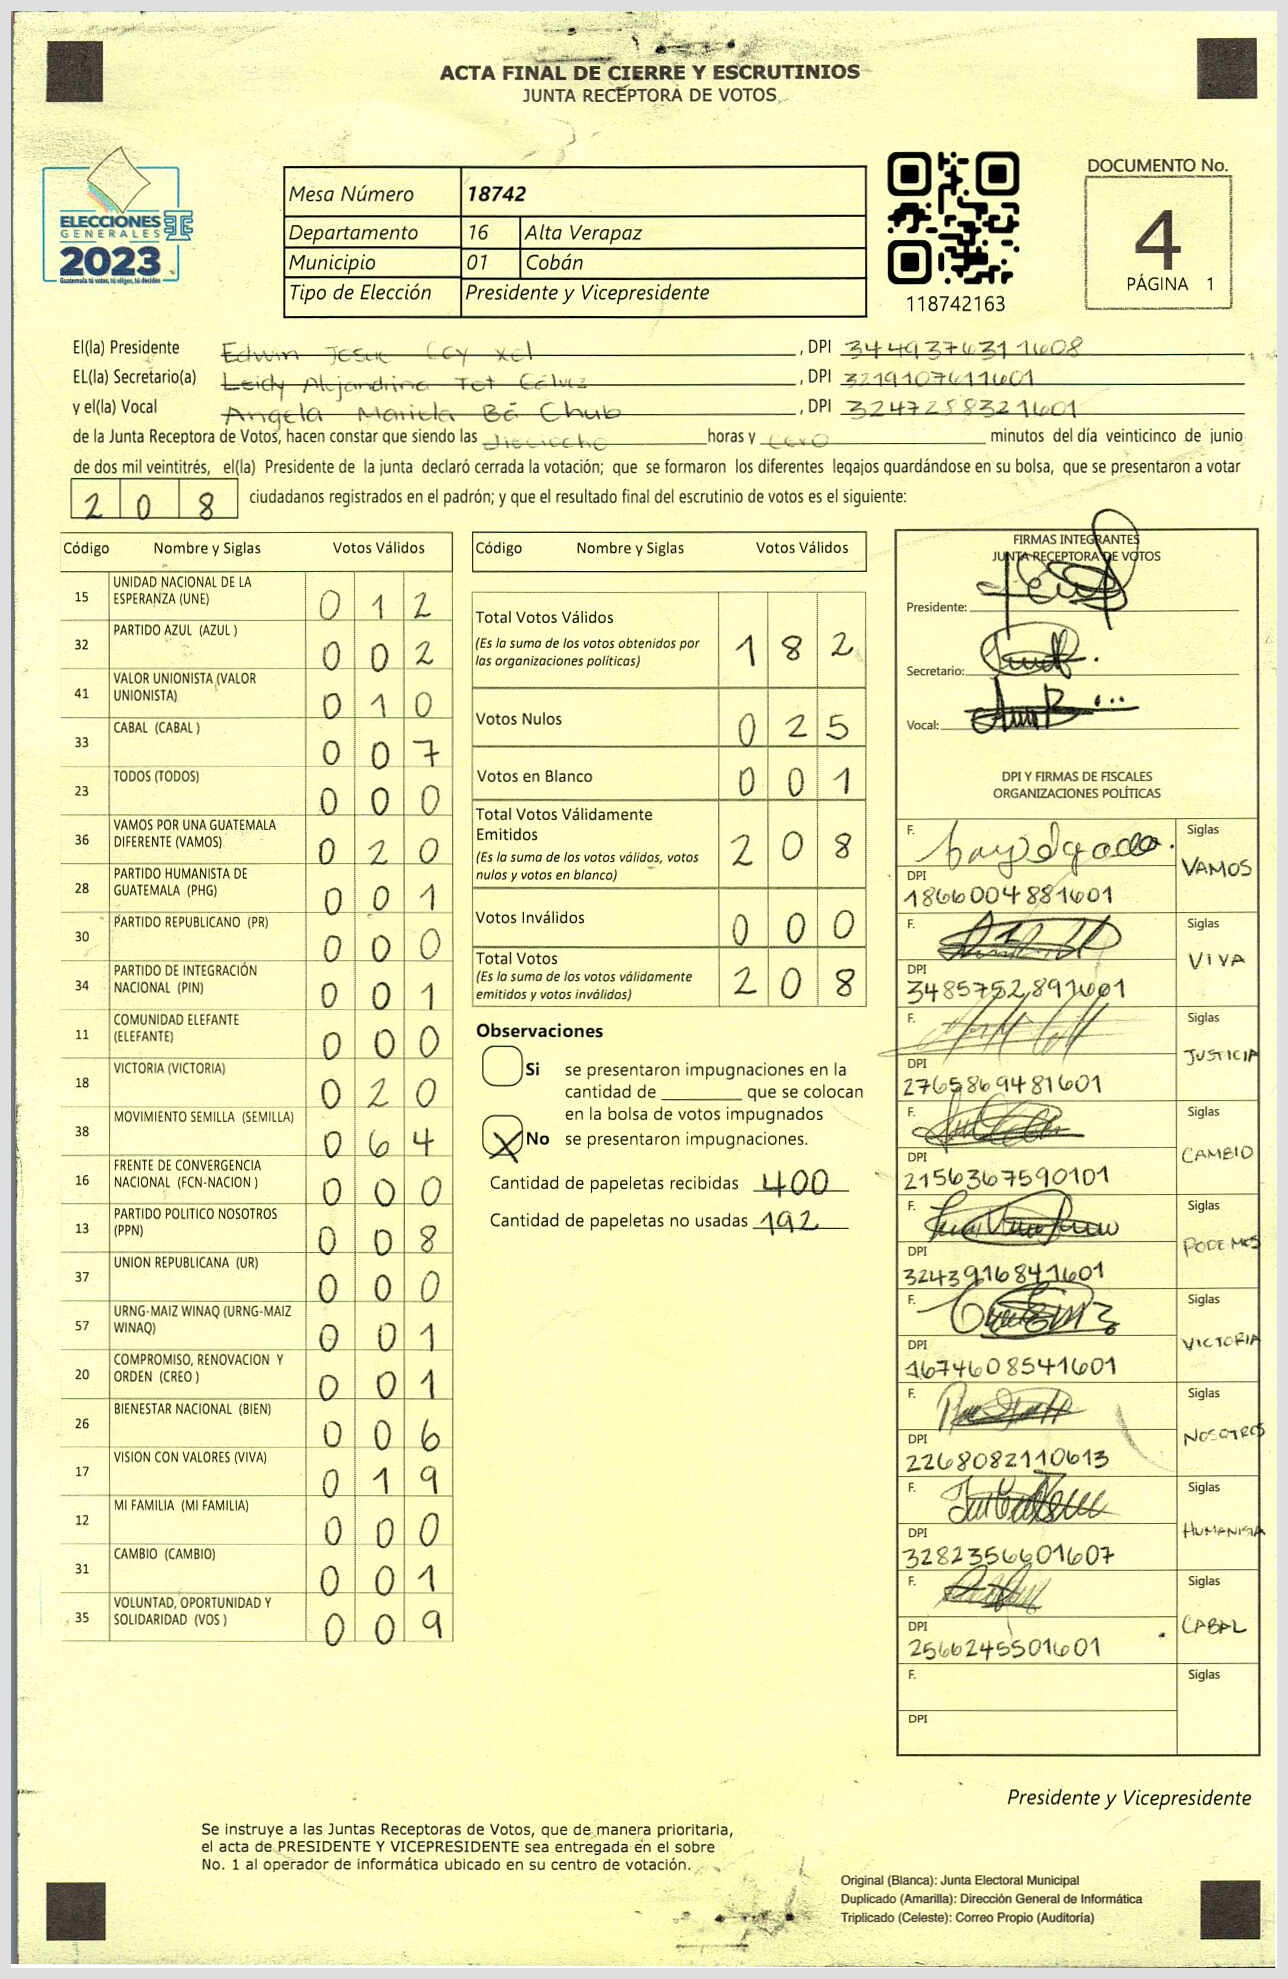 ACTA FINAL DE CIERRE Y ESCRUTINIOS
JUNTA RECEPTORA DE VOTOS
ELECCIONES
GENERALES
2023
Guatemala tú votas, tú eliges, tú decides
Mesa Número 18742
Departamento 16 Alta Verapaz
Municipio 01 Cobán
Tipo de Elección Presidente y Vicepresidente
118742163
DOCUMENTO No.
4
PÁGINA 1
El(la) Presidente Edwin Josue Ccy Xol, DPI 3449376311608
EL(la) Secretario(a) Leidy Alejandrina Tot Gálvez, DPI 3219107611601
y el(la) Vocal Angela Mariela Bá Chub, DPI 3247258321601
de la Junta Receptora de Votos, hacen constar que siendo las Dieciocho horas y cero minutos del día veinticinco de junio
de dos mil veintitrés, el(la) Presidente de la junta declaró cerrada la votación; que se formaron los diferentes legajos guardándose en su bolsa, que se presentaron a votar
208 ciudadanos registrados en el padrón; y que el resultado final del escrutinio de votos es el siguiente:
Código Nombre y Siglas Votos Válidos
15 UNIDAD NACIONAL DE LA ESPERANZA (UNE) 012
32 PARTIDO AZUL (AZUL ) 002
41 VALOR UNIONISTA (VALOR UNIONISTA) 010
33 CABAL (CABAL ) 007
23 TODOS (TODOS) 000
36 VAMOS POR UNA GUATEMALA DIFERENTE (VAMOS) 020
28 PARTIDO HUMANISTA DE GUATEMALA (PHG) 001
30 PARTIDO REPUBLICANO (PR) 000
34 PARTIDO DE INTEGRACIÓN NACIONAL (PIN) 001
11 COMUNIDAD ELEFANTE (ELEFANTE) 000
18 VICTORIA (VICTORIA) 020
38 MOVIMIENTO SEMILLA (SEMILLA) 064
16 FRENTE DE CONVERGENCIA NACIONAL (FCN-NACION ) 000
13 PARTIDO POLITICO NOSOTROS (PPN) 008
37 UNION REPUBLICANA (UR) 000
57 URNG-MAIZ WINAQ (URNG-MAIZ WINAQ) 001
20 COMPROMISO, RENOVACION Y ORDEN (CREO ) 001
26 BIENESTAR NACIONAL (BIEN) 006
17 VISION CON VALORES (VIVA) 019
12 MI FAMILIA (MI FAMILIA) 000
31 CAMBIO (CAMBIO) 001
35 VOLUNTAD, OPORTUNIDAD Y SOLIDARIDAD (VOS ) 009
Código Nombre y Siglas Votos Válidos
Total Votos Válidos 182
(Es la suma de los votos obtenidos por
las organizaciones políticas)
Votos Nulos 025
Votos en Blanco 001
Total Votos Válidamente
Emitidos 208
(Es la suma de los votos válidos, votos
nulos y votos en blanco)
Votos Inválidos 000
Total Votos 208
(Es la suma de los votos válidamente
emitidos y votos inválidos)
Observaciones
Si se presentaron impugnaciones en la
cantidad de ________ que se colocan
en la bolsa de votos impugnados
X No se presentaron impugnaciones.
Cantidad de papeletas recibidas 400
Cantidad de papeletas no usadas 192
FIRMAS INTEGRANTES
JUNTA RECEPTORA DE VOTOS
Presidente:
Secretario:
Vocal:
DPI Y FIRMAS DE FISCALES
ORGANIZACIONES POLÍTICAS
F. Siglas VAMOS
DPI 1866004881601
F. Siglas VIVA
DPI 3485752891601
F. Siglas JUSTICIA
DPI 2765869481601
F. Siglas CAMBIO
DPI 2156367590101
F. Siglas PODEMOS
DPI 3243916841601
F. Siglas VICTORIA
DPI 1674608541601
F. Siglas NOSOTROS
DPI 2268082110613
F. Siglas HUMANISTA
DPI 3282356601607
F. Siglas CABAL
DPI 2566245501601
F. Siglas
DPI
Presidente y Vicepresidente
Se instruye a las Juntas Receptoras de Votos, que de manera prioritaria,
el acta de PRESIDENTE Y VICEPRESIDENTE sea entregada en el sobre
No. 1 al operador de informática ubicado en su centro de votación.
Original (Blanca): Junta Electoral Municipal
Duplicado (Amarilla): Dirección General de Informática
Triplicado (Celeste): Correo Propio (Auditoría)